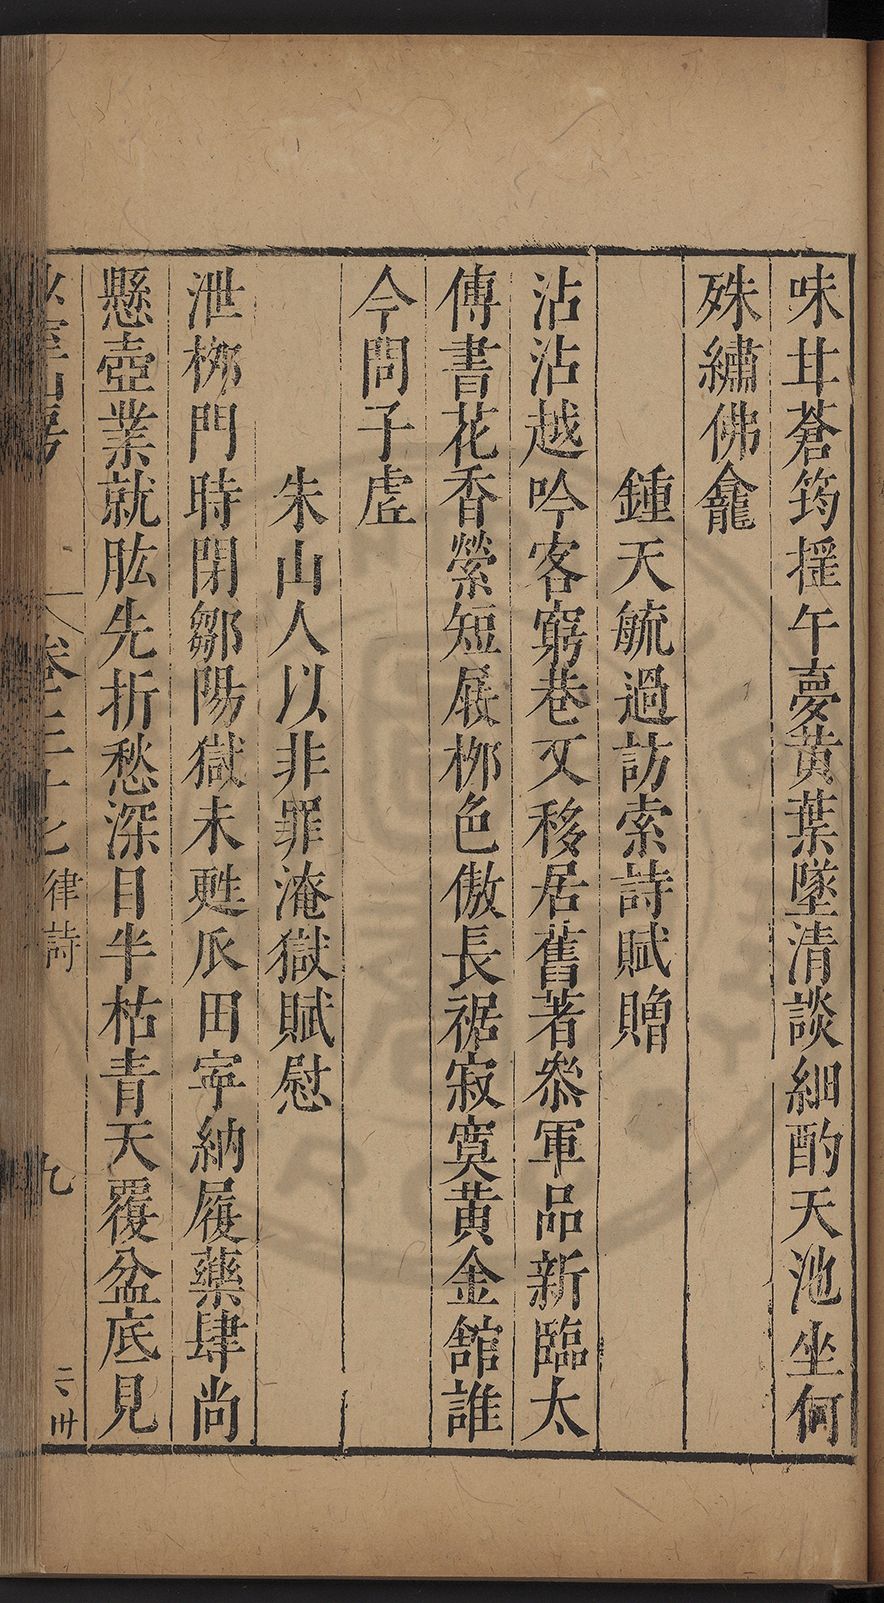 味甘蒼筠摇午夣黄葉墜清談細酌天池坐何
殊繡佛龕
鍾天毓過訪索詩賦贈
沾沾越吟客窮巷又移居舊著叅軍品新臨太
傅書花香縈短屐栁色傲長裾寂寞黄金舘誰
今問子虗
朱山人以非罪淹獄賦慰
泄栁門時閉鄒陽獄未甦瓜田寜納履藥肆尚
懸壺業就肱先折愁深目半枯青天覆盆底見
卷三十七
律詩
九